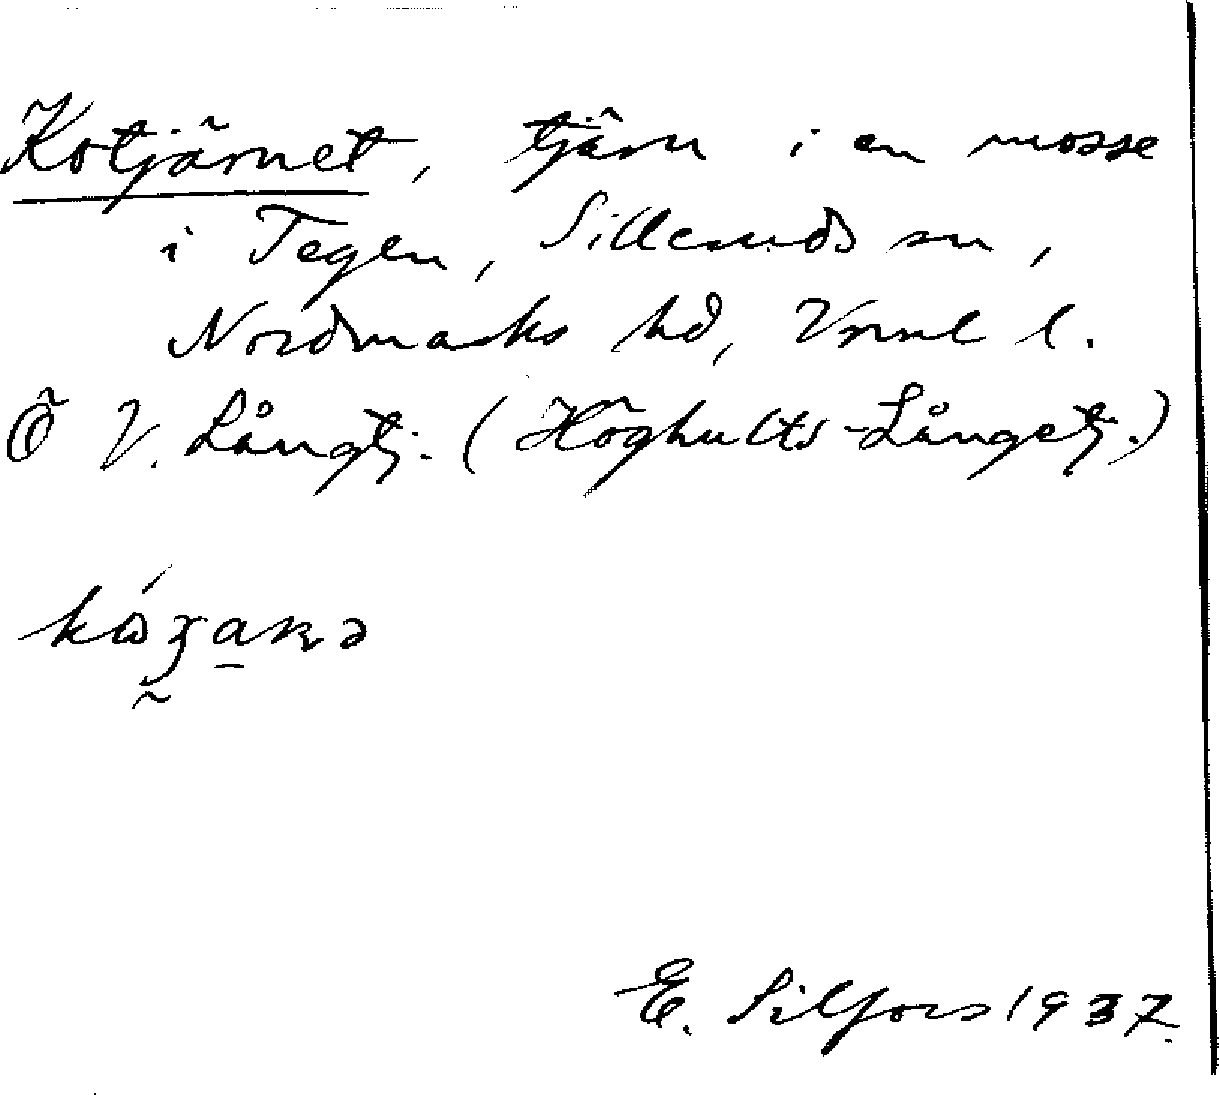 Kotjärnet, tjärn i en mosse
i Tegen, Sillerudssn,
Nordmarks hd, Vrml l.
Ö V. Långtj. (Höghults-Långetj.)
E. Silfors 1937.